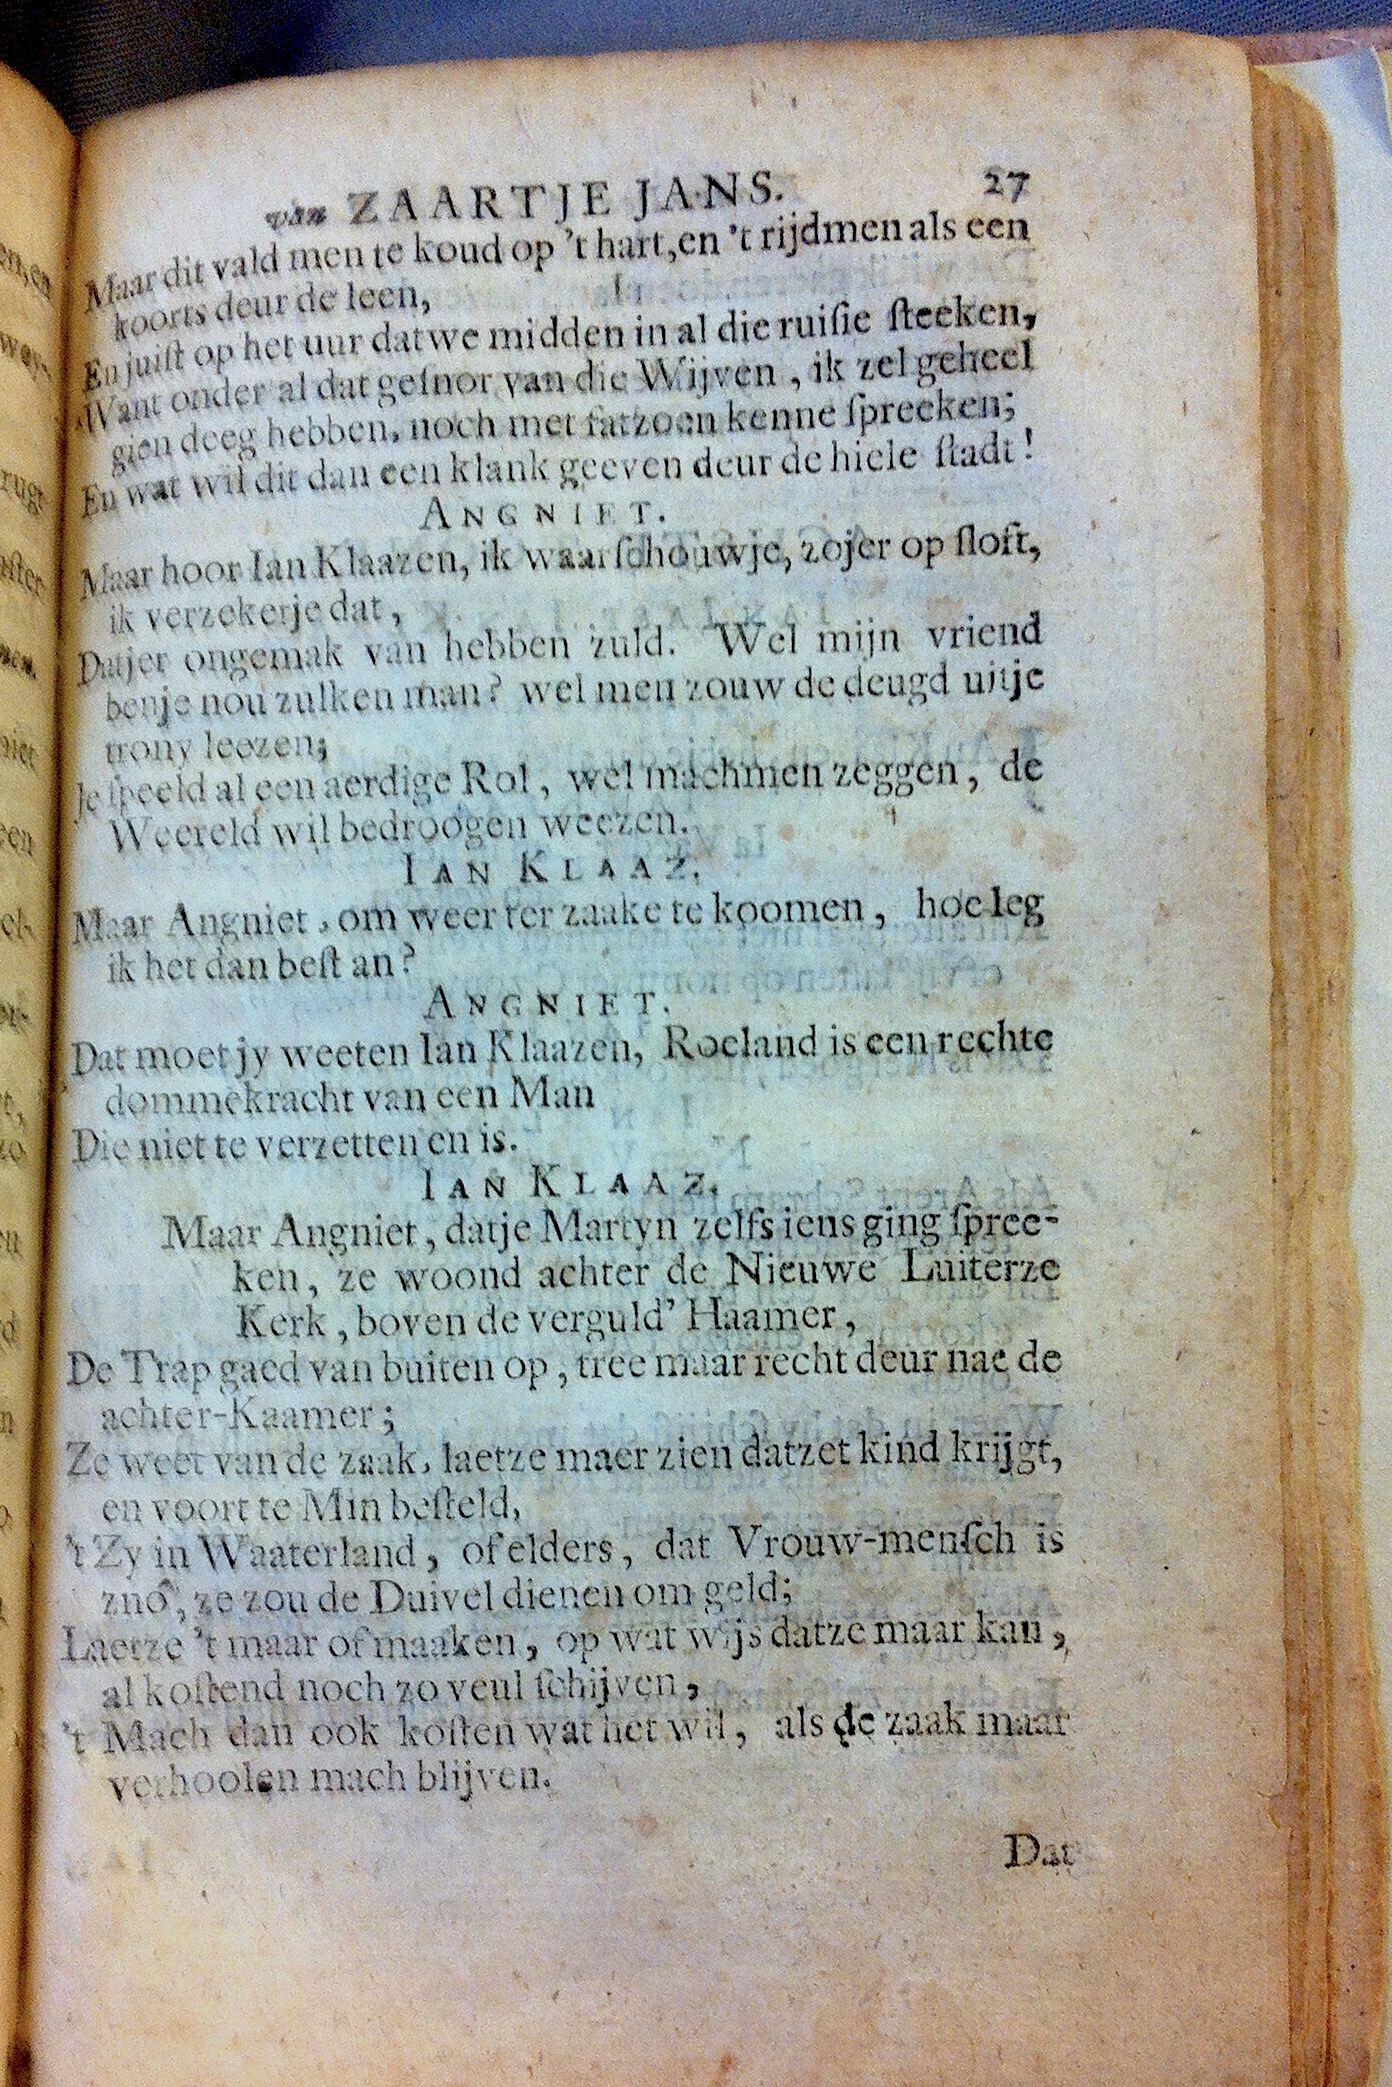 van ZAARTJE JANS. 27
Maar dit vald men te koud op 't hart, en 't rijdmen als een
koorts deur de leen,
En juiſt op het uur datwe midden in al die ruiſie ſteeken,
Want onder al dat geſnor van die Wijven, ik zel geheel
gien deeg hebben, noch met fatzoen kenne ſpreeken;
En wat wil dit dan een klank geeven deur de hiele ſtadt!
ANGNIET.
Maar hoor Ian Klaazen, ik waarſchouwje, zojer op ſloft,
ik verzekerje dat,
Datjer ongemak van hebben zuld. Wel mijn vriend
benje nou zulken man? wel men zouw de deugd uitje
trony leezen;
Je ſpeeld al een aerdige Rol, wel machmen zeggen, de
Weereld wil bedroogen weezen.
IAN KLAAZ.
Maar Angniet, om weer ter zaake te koomen, hoe leg
ik het dan beſt an?
ANGNIET.
Dat moet jy weeten Ian Klaazen, Roeland is een rechte
dommekracht van een Man
Die niet te verzetten en is.
IAN KLAAZ.
Maar Angniet, datje Martyn zelfs iens ging ſpree-
ken, ze woond achter de Nieuwe Luiterze
Kerk, boven de verguld' Haamer,
De Trap gaed van buiten op, tree maar recht deur nae de
achter-Kaamer;
Ze weet van de zaak, laetze maer zien datzet kind krijgt,
en voort te Min beſteld,
't Zy in Waaterland, of elders, dat Vrouw-menſch is
znô, ze zou de Duivel dienen om geld;
Laetze 't maar of maaken, op wat wijs datze maar kan,
al koſtend noch zo veul ſchijven,
't Mach dan ook koſten wat het wil, als de zaak maar
verhoolen mach blijven.
Dat